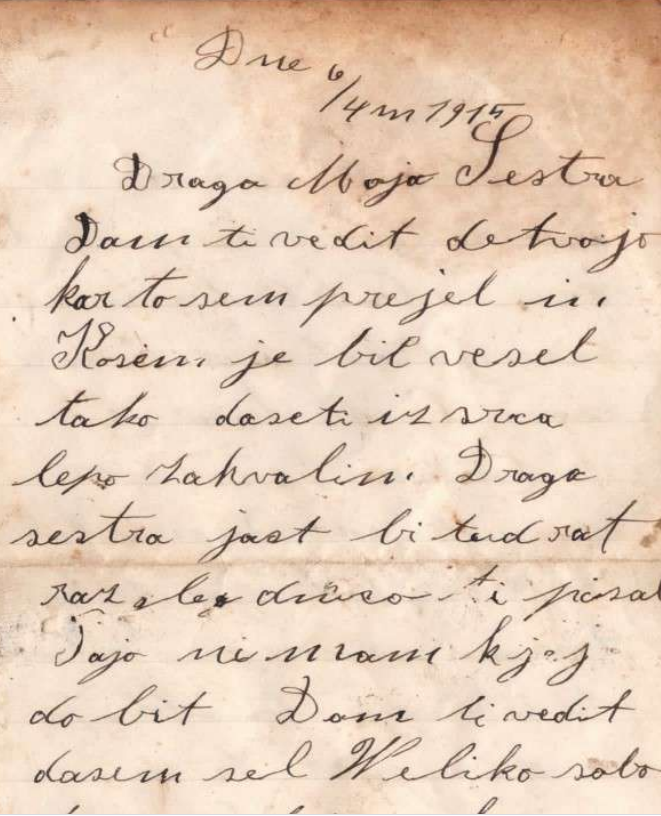 Dne 6/4 m 1915
Draga Moja Sestra
Dam ti vedit de tvojo
kar to sem prejel in
Kosem je bil vesel
tako daseti iz srca
lepo zahvalim. Draga
sestra jast bi tud rat
raz ti pisal
Tajo nimam kjej
do bit Dam ti vedit
dasem sel Weliko sobo